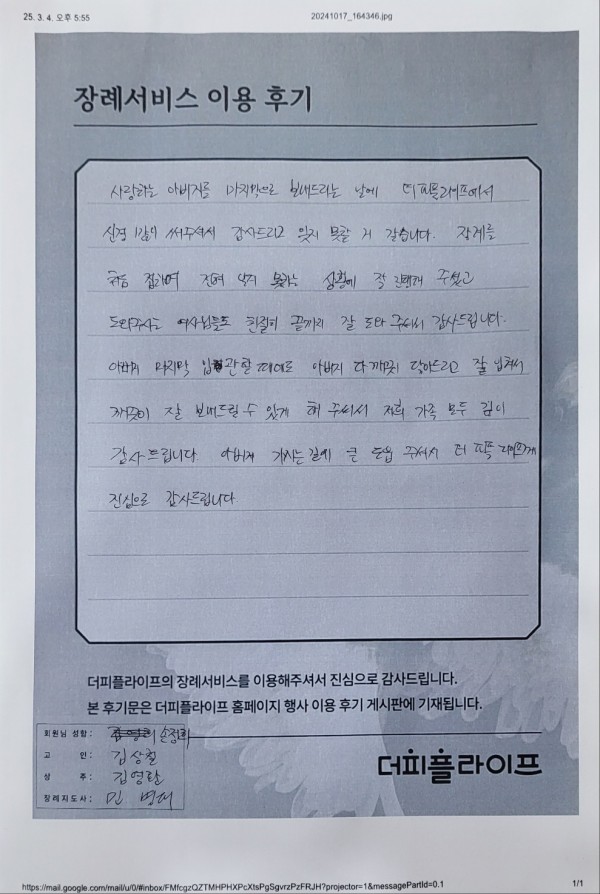 25. 3. 4. 오후 5:55
20241017_164346.jpg
장례서비스 이용 후기
사랑하는 아버지를 마지막으로 보내드리는 날에 더피플라이프에서
신경 많이 써주셔서 감사드리고 잊지 못할 거 같습니다. 장례를
처음 접하여 전혀 알지 못하는 상황에 잘 진행해 주셨고
도와주시는 여사님들도 친절히 끝까지 잘 도와 주셔서 감사드립니다.
아버지 마지막 입관할 때에도 아버지 다 깨끗이 닦아드리고 잘 입혀서
깨끗이 잘 보내드릴 수 있게 해 주셔서 저희 가족 모두 깊이
감사드립니다. 아버지 가시는 길에 큰 도움 주셔서 더피플라이프에게
진심으로 감사드립니다
더피플라이프의 장례서비스를 이용해주셔서 진심으로 감사드립니다.
본 후기문은 더피플라이프 홈페이지 행사 이용 후기 게시판에 기재됩니다.
회원님 성함: 손정희
고 인: 김상철
상 주: 김영란
장례지도사: 민
더피플라이프
https://mail.google.com/mail/u/0/#inbox/FMfcgzQZTMHPHXPcXtsPgSgvrzPzFRJH?projector=1&messagePartId=0.1
1/1